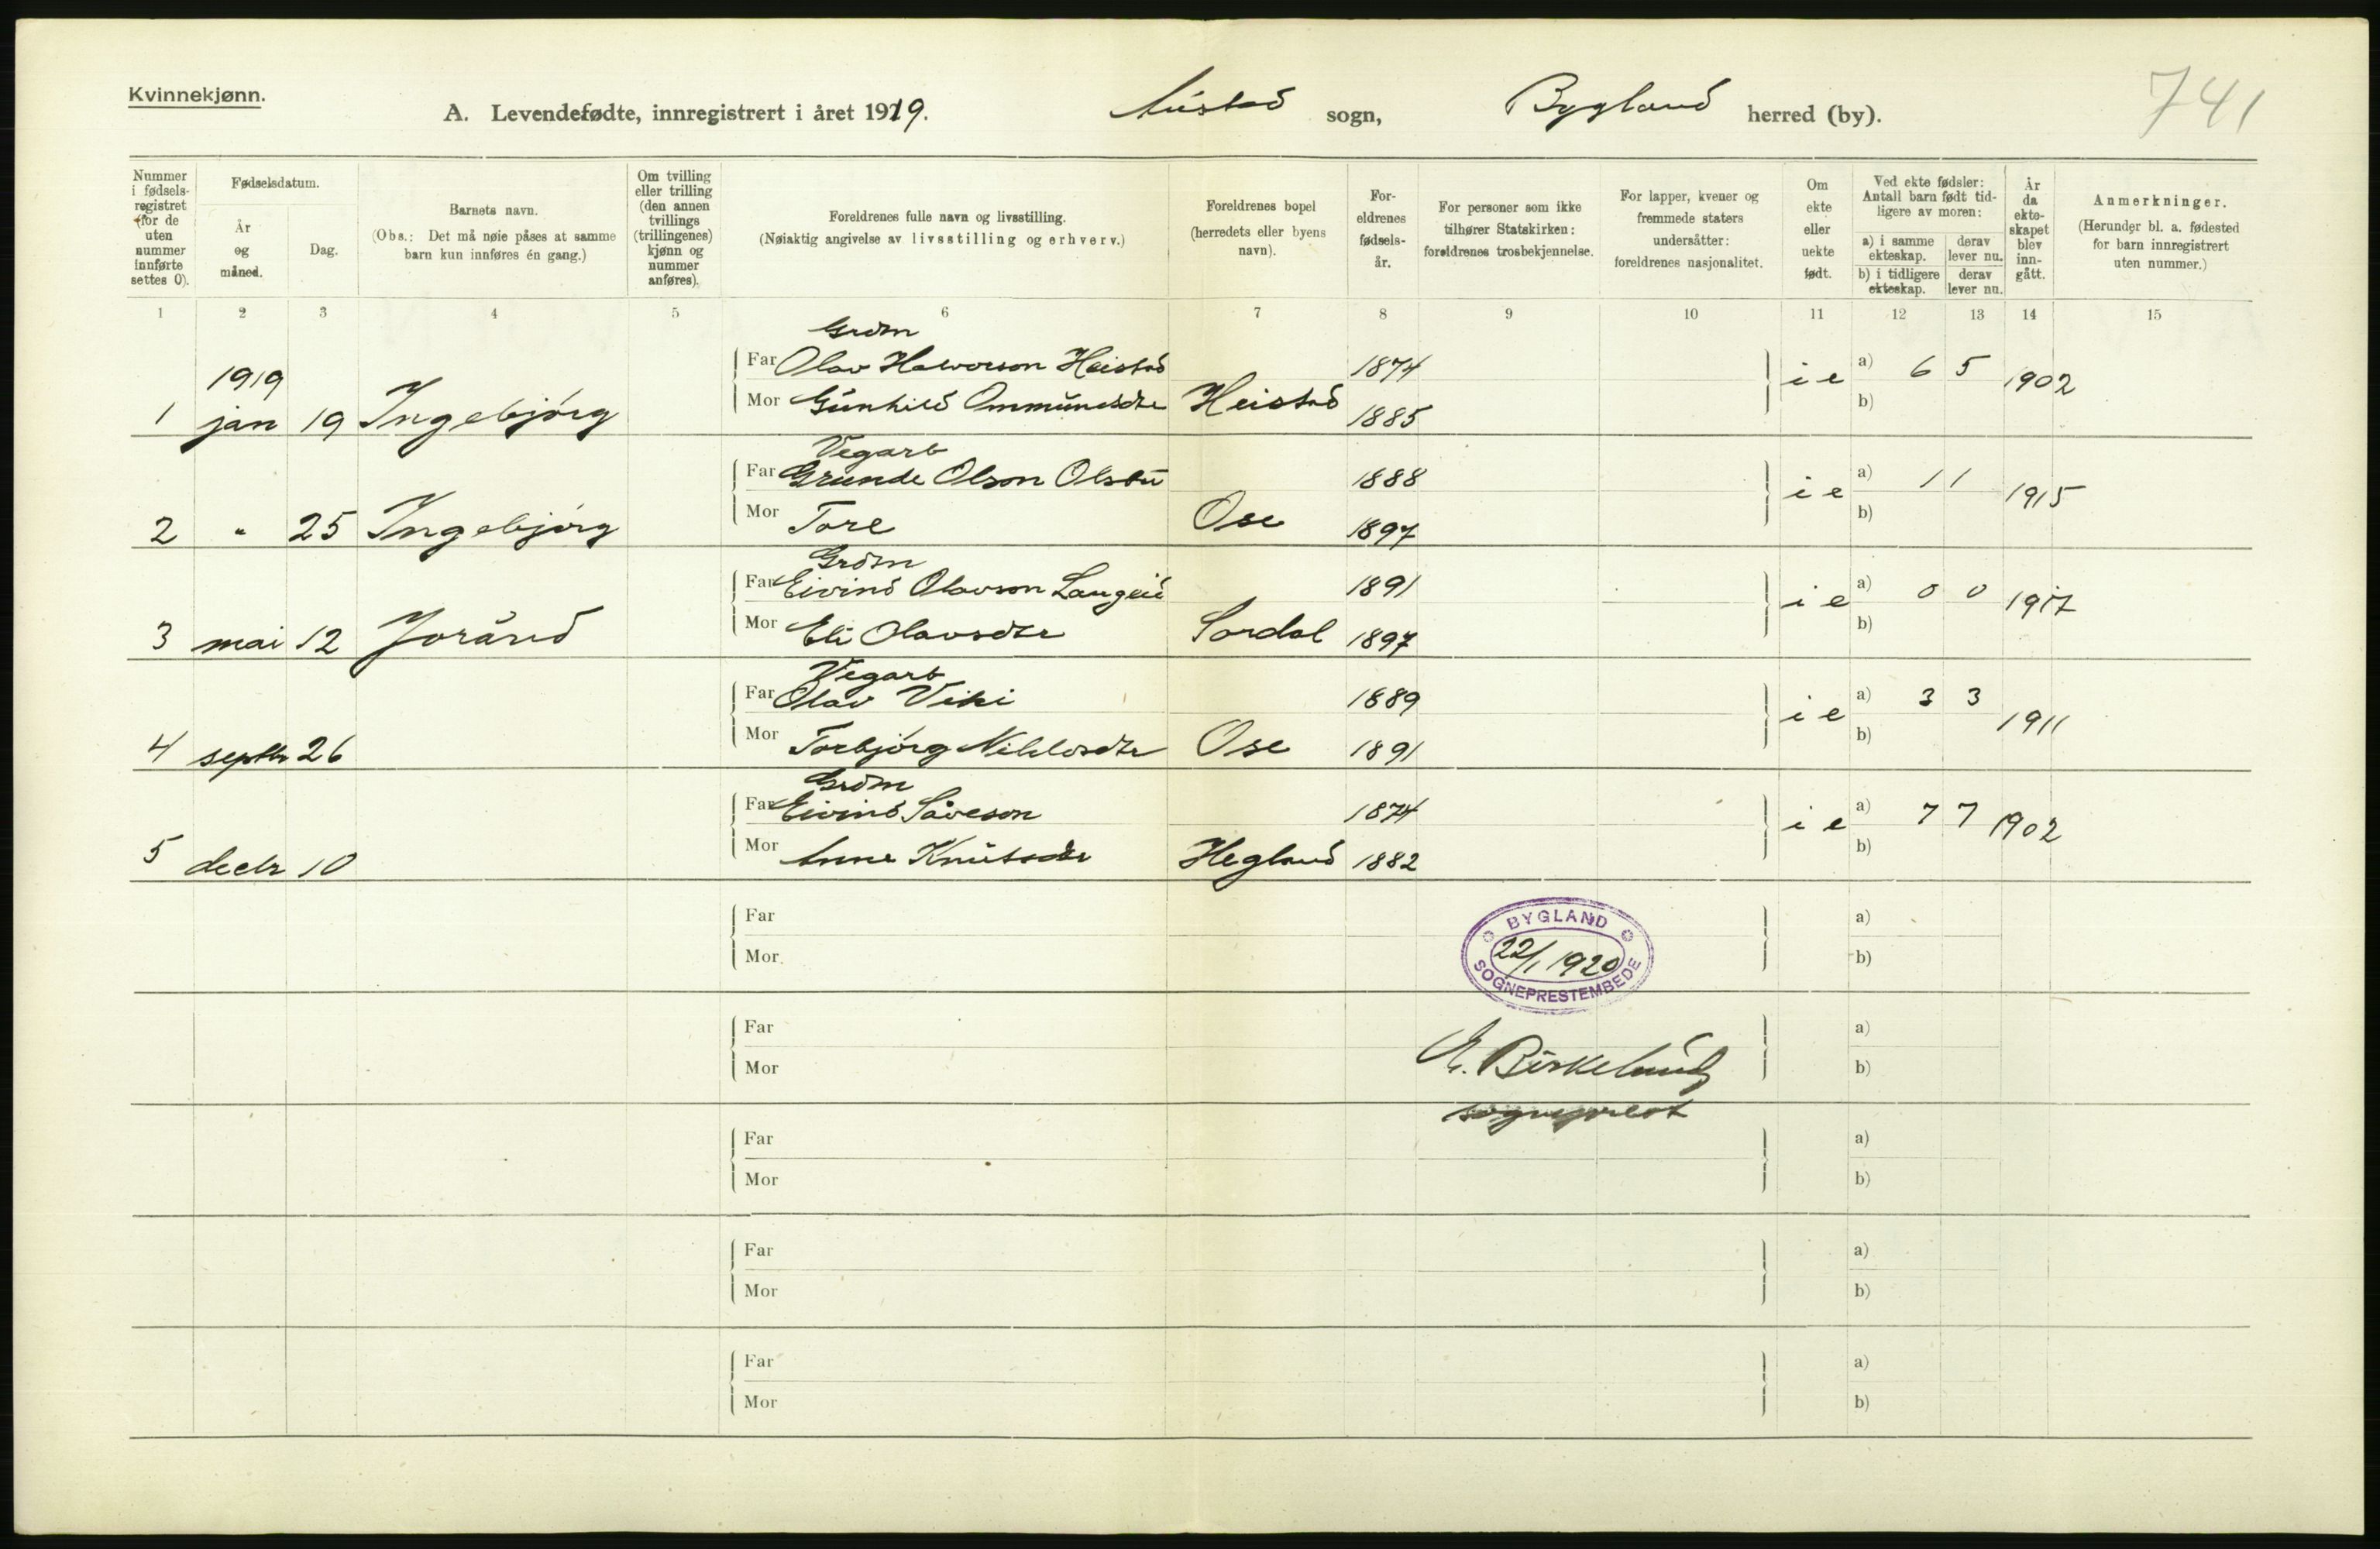 Kvinnekjønn.
A. Levendefødte, innregistrert i året 1919. Austad sogn, Bygland herred (by). 741
Nummer i fødselsregistret (for de uten nummer innførte settes 0).
Fødselsdatum.
År og måned.
Dag.
Barnets navn.
(Obs.: Det må nøie påses at samme barn kun innføres én gang.)
Om tvilling eller trilling (den annen tvillings (trillingenes) kjønn og nummer anføres).
Foreldrenes fulle navn og livsstilling.
(Nøiaktig angivelse av livsstilling og erhverv.)
Foreldrenes bopel (herredets eller byens navn).
Foreldrenes fødselsår.
For personer som ikke tilhører Statskirken: foreldrenes trosbekjennelse.
For lapper, kvener og fremmede staters undersåtter: foreldrenes nasjonalitet.
Om ekte eller uekte født.
Ved ekte fødsler: Antall barn født tidligere av moren:
a) i samme ekteskap. derav lever nu.
b) i tidligere ekteskap. derav lever nu.
År da ekteskapet blev inngått.
Anmerkninger.
(Herunder bl. a. fødested for barn innregistrert uten nummer.)
1 2 3 4 5 6 7 8 9 10 11 12 13 14 15
Grdm
1919 Far Olav Halvorson Heistad 1874 i e a) 6 5 1902
1 jan 19 Ingebjórg Mor Gunhild Ommundsdtr Heistad 1885 b)
Vegarb
Far Grunde Olson Olstu 1888 i e a) 1 1 1915
2 " 25 Ingebjórg Mor Tore Ose 1897 b)
Grdm
Far Eivind Olavson Langeid 1891 i e a) 0 0 1917
3 mai 12 Joránd Mor Eli Olavsdtr Sordal 1897 b)
Vegarb
Far Olav Viki 1889 i e a) 3 3 1911
4 septbr 26 Mor Torbjórg Nilsdtr Ose 1891 b)
Grdm
Far Eivind Såveson 1874 i e a) 7 7 1902
5 decbr 10 Mor Anne Knutsdtr Hegland 1882 b)
Far a)
Mor b)
BYGLAND
22/1 1920
SOGNEPRESTEMBEDE
Far a)
Mor b)
A. Birkelund
sogneprest
Far a)
Mor b)
Far a)
Mor b)
Far a)
Mor b)